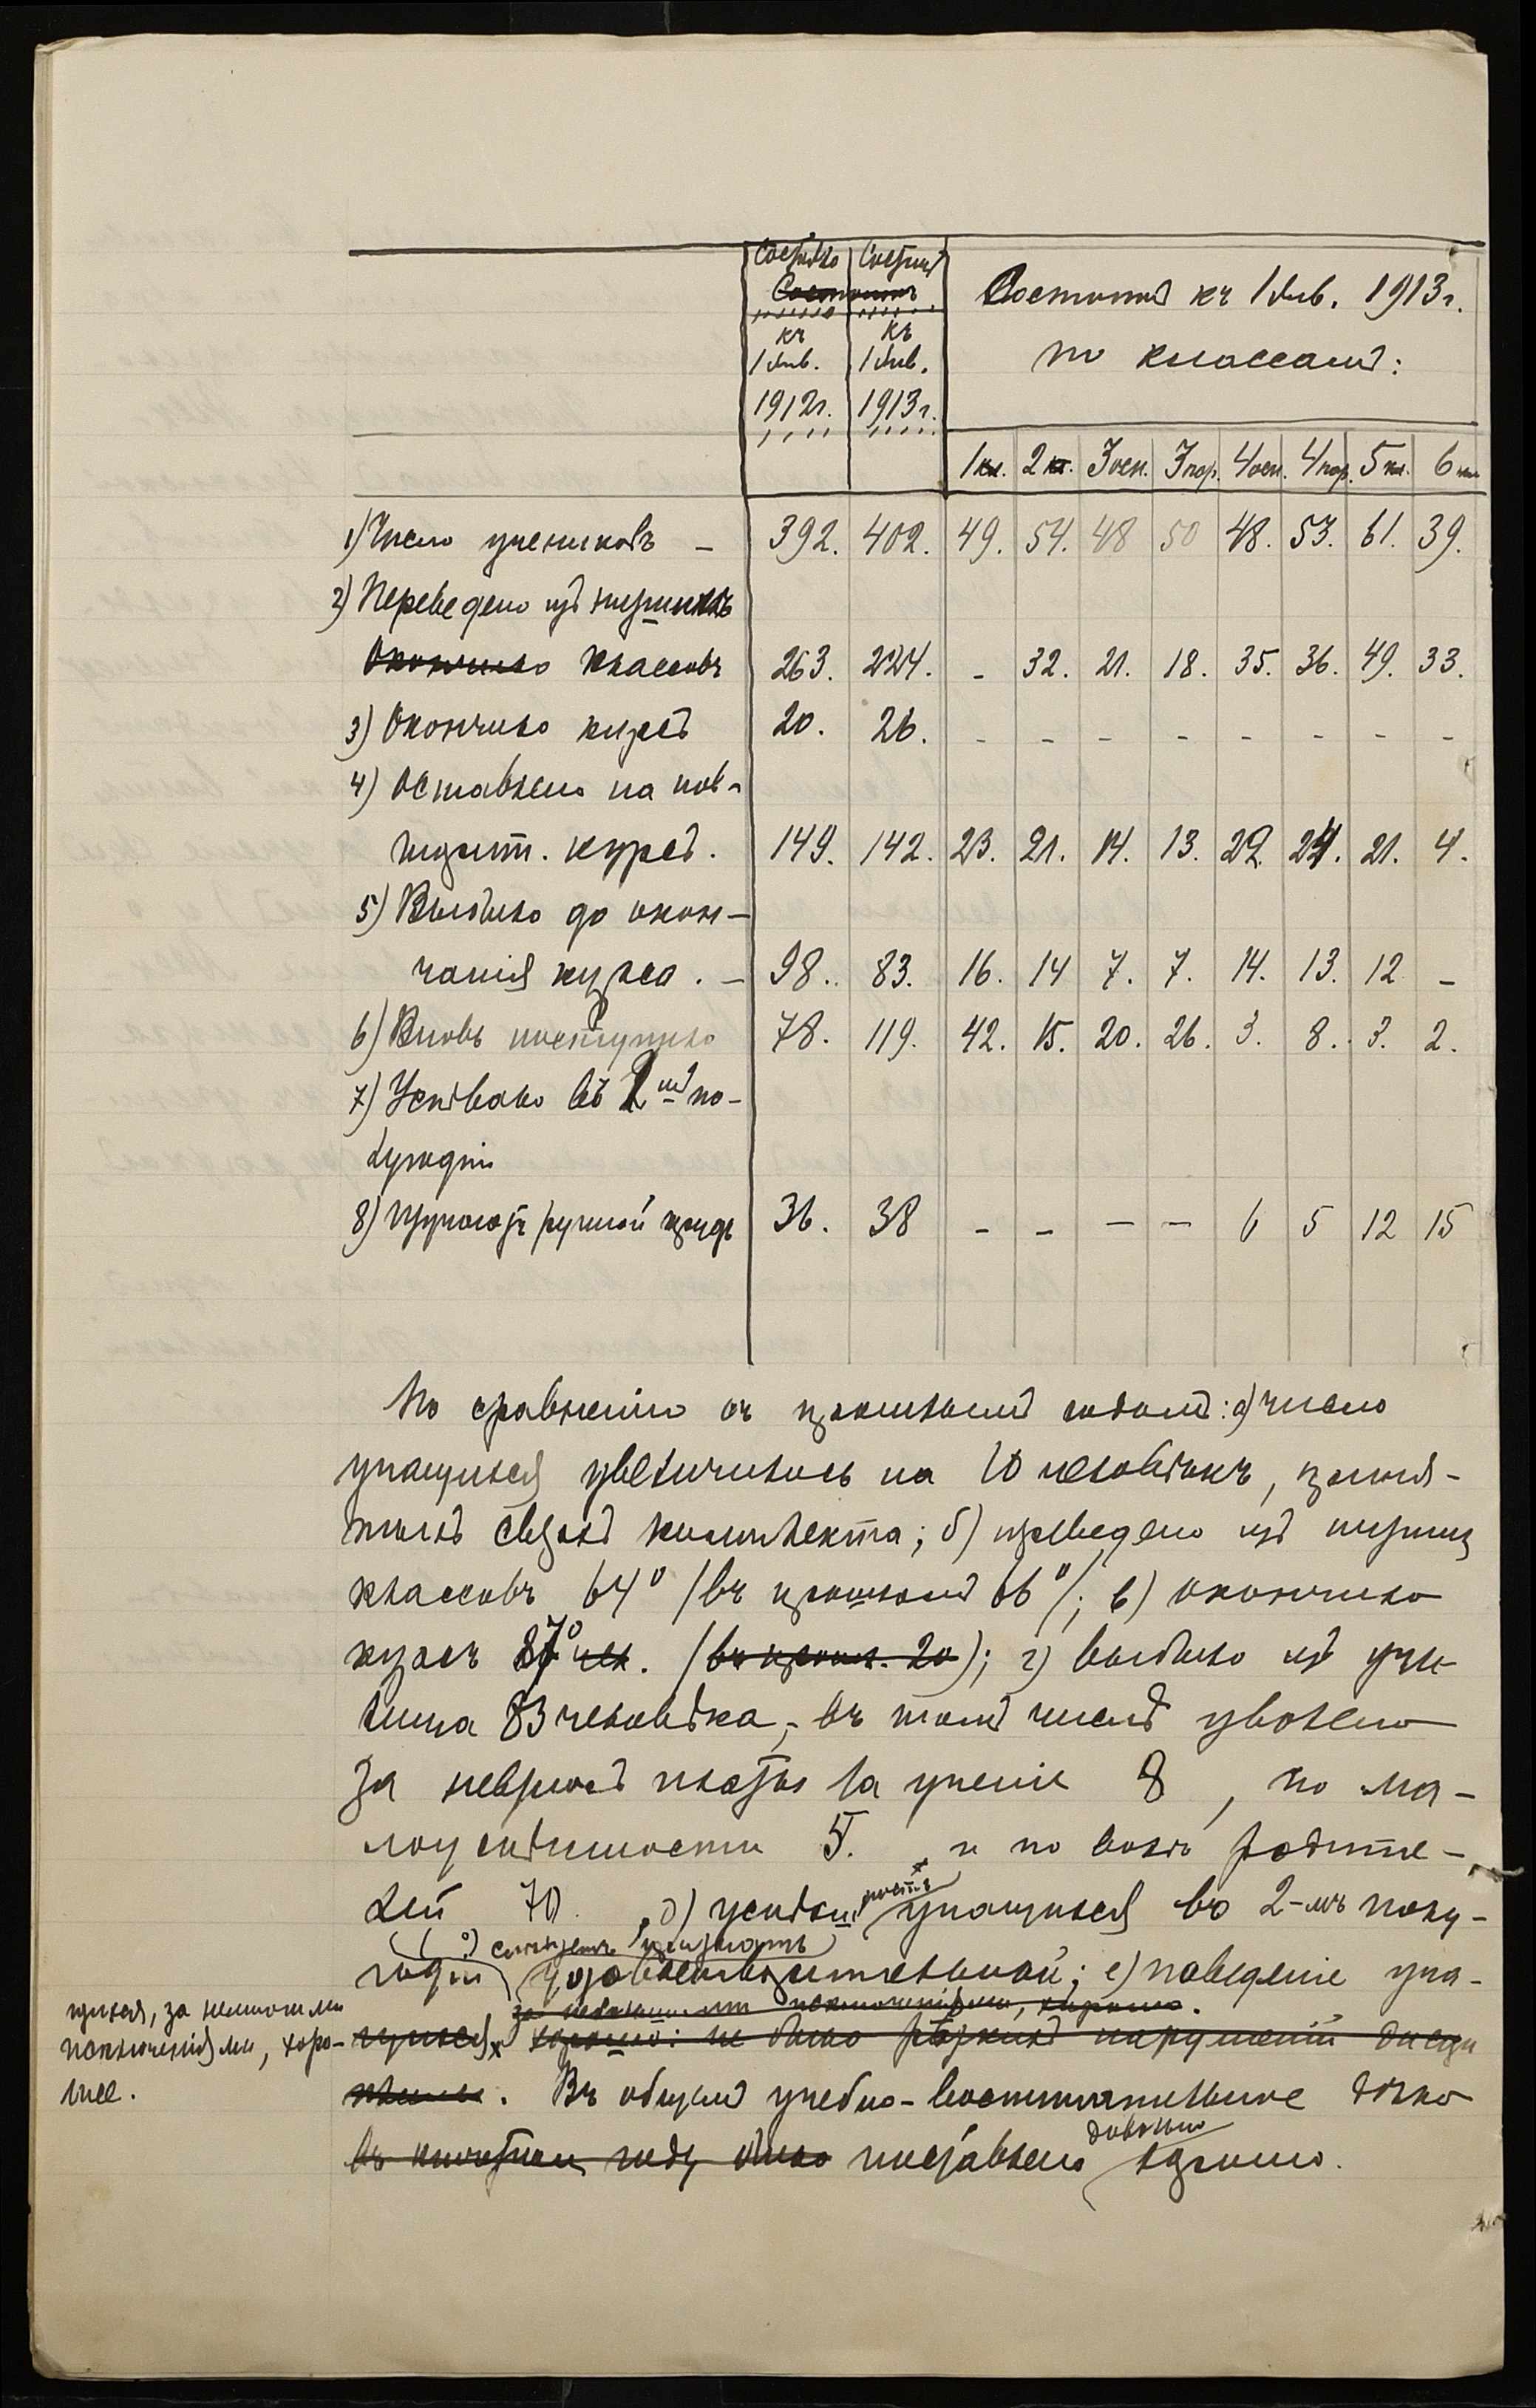 Состояло Состоит
Состоитъ
къ къ
1 Янв. 1 Янв.
1912 г. 1913 г.
Состоитъ къ 1 Янв. 1913 г.
по классамъ:
1 кл. 2 кл. 3 осн. 3 пар. 4 осн. 4 пар. 5 кл. 6 кл.
1) Число учениковъ – 392. 402. 49. 54. 48 50 48. 53. 61. 39.
2) Переведено изъ низшихъ
Окончило классовъ 263. 224. - 32. 21. 18. 35. 36. 49. 33.
3) Окончило курсъ 20. 26. - - - - - - - -
4) Оставлено на пов-
торит. курсъ. 149. 142. 23. 21. 14. 13. 22. 24. 21. 4.
5) Выбыло до окон-
чанія курса. – 98. 83. 16. 14 7. 7. 14. 13. 12 -
6) Вновь поступило 78. 119. 42. 15. 20. 26. 3. 8. 3. 2.
7) Успѣвало въ 2мъ по-
лугодіи
8) Изучаютъ ручной трудъ 36. 38 - - - - 6 5 12 15
По сравненію съ прошлымъ годомъ: а) число
учащихся увеличилось на 10 человѣкъ, приня-
тыхъ сверхъ комплекта; б) переведено изъ низших
классовъ 64% (въ прошломъ 66%); в) окончило
курсъ 87% чел. (въ прошл. 20); г) выбыло изъ учи-
лища 83 человѣка, въ томъ числѣ уволено
за невзносъ платы за ученіе 8, по ма-
лоуспѣшности 5. и по волѣ родите-
лей 70. , д) успѣхи учащихся въ 2-мъ полу-
слѣдуетъ признать
годіи удовлетворительной; е) поведеніе уча-
за немногими исключеніями, хорошо.
щихся, за немногими
исключеніями, хоро-
шее.
щихся хорошо: не было рѣзкихъ нарушеній дисци
плины. Въ общемъ учебно-воспитательное дѣло
довольно
въ отчетном году было поставлено хорошо.